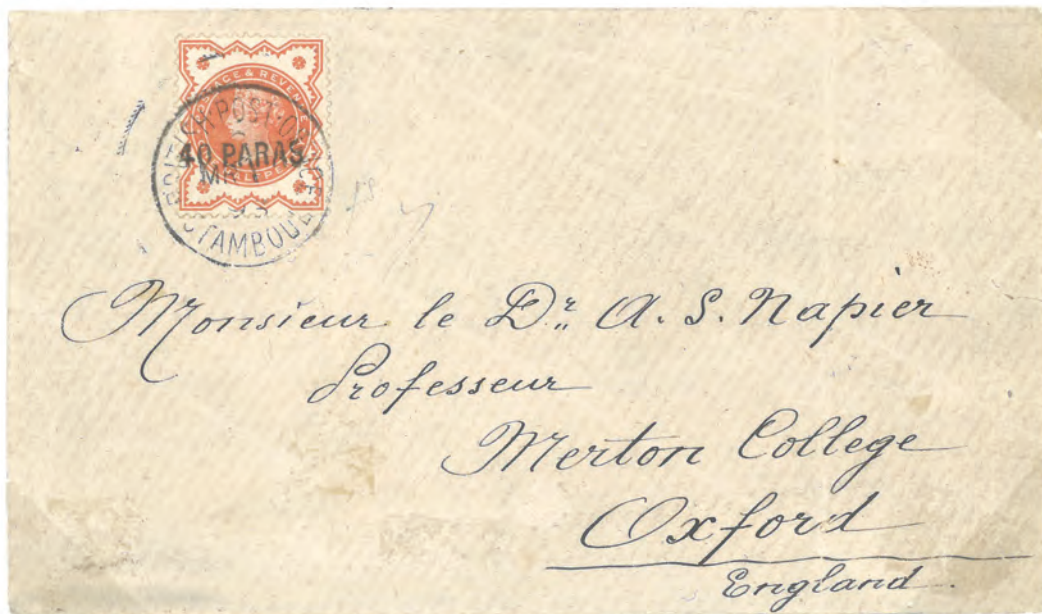 POSTAGE & REVENUE
HALFPENNY
40 PARAS
BRITISH POST OFFICE
MR 1
93
STAMBOUL
Monsieur le Dr. A. S. Napier
Professeur
Merton College
Oxford
England.